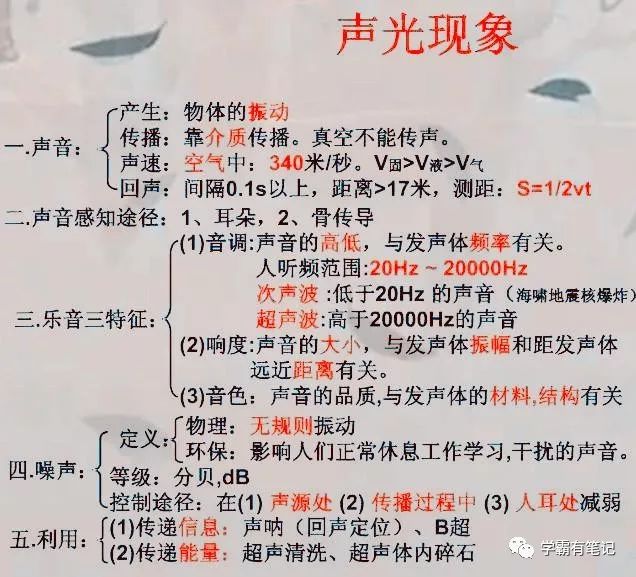 声光现象
一.声音：
产生：物体的振动
传播：靠介质传播。真空不能传声。
声速：空气中：340米/秒。V固>V液>V气
回声：间隔0.1s以上，距离>17米，测距：S=1/2vt
二.声音感知途径：1、耳朵，2、骨传导
三.乐音三特征：
(1)音调:声音的高低，与发声体频率有关。
人听频范围:20Hz ~ 20000Hz
次声波 :低于20Hz 的声音（海啸地震核爆炸）
超声波:高于20000Hz的声音
(2)响度:声音的大小，与发声体振幅和距发声体
远近距离有关。
(3)音色：声音的品质,与发声体的材料,结构有关
四.噪声：
定义：
物理：无规则振动
环保：影响人们正常休息工作学习,干扰的声音。
等级：分贝,dB
控制途径：在(1) 声源处 (2) 传播过程中 (3) 人耳处减弱
五.利用：
(1)传递信息：声呐（回声定位）、B超
(2)传递能量：超声清洗、超声体内碎石
学霸有笔记